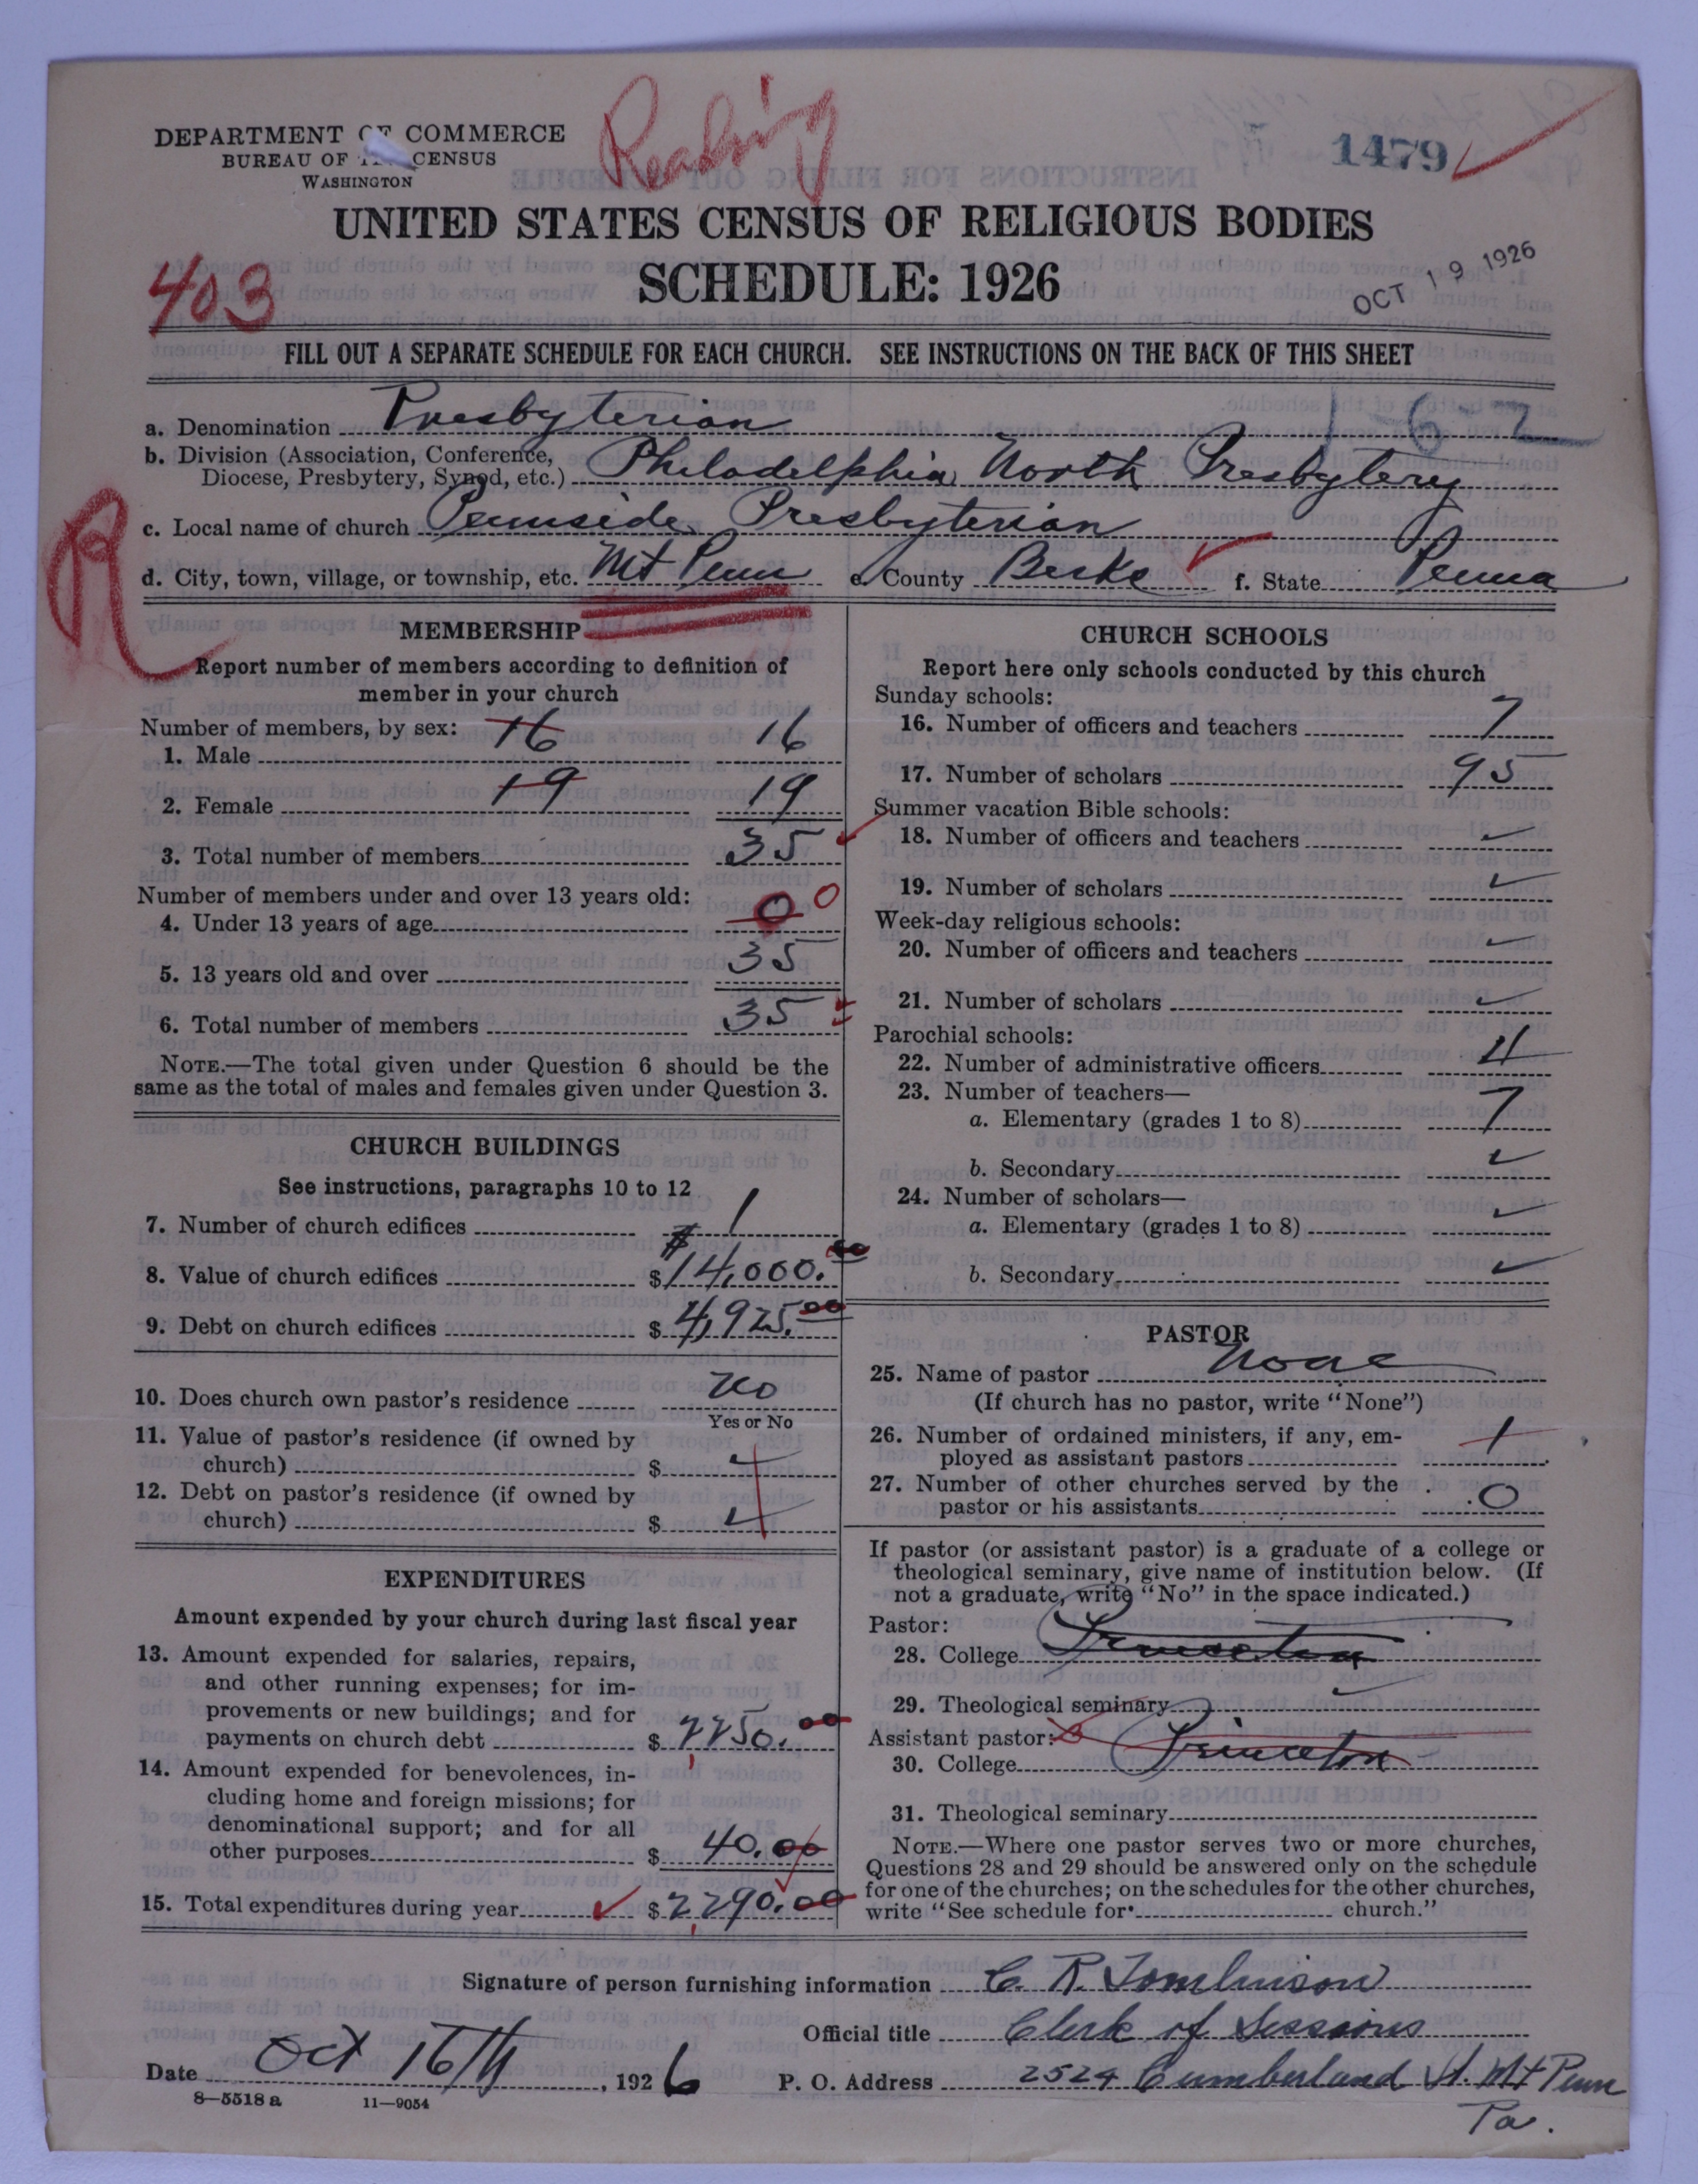 Reading
DEPARTMENT OF COMMERCE
BUREAU OF CENSUS
WASHINGTON
1479
UNITED STATES CENSUS OF RELIGIOUS BODIES
403
SCHEDULE: 1926
OCT 19 1926
FILL OUT A SEPARATE SCHEDULE FOR EACH CHURCH. SEE INSTRUCTIONS ON THE BACK OF THIS SHEET
1-6-2
a. Denomination Presbyterian
b. Division (Association, Conference,
Diocese, Presbytery, Synod, etc.) Philadelphia North Presbytery
c. Local name of church Pennside Presbyterian
R
d. City, town, village, or township, etc. Mt Penn e. County Berks f. State Penna
MEMBERSHIP
Report number of members according to definition of
member in your church
Number of members, by sex:
1. Male 16 16
2. Female 19 19
3. Total number of members 35
Number of members under and over 13 years old:
4. Under 13 years of age 0 0
5. 13 years old and over 35
6. Total number of members 35
NOTE.—The total given under Question 6 should be the
same as the total of males and females given under Question 3.
CHURCH BUILDINGS
See instructions, paragraphs 10 to 12
7. Number of church edifices 1
8. Value of church edifices $ $14,000.00
9. Debt on church edifices $ 4,925.00
10. Does church own pastor's residence No
Yes or No
11. Value of pastor's residence (if owned by
church) $
12. Debt on pastor's residence (if owned by
church) $
EXPENDITURES
Amount expended by your church during last fiscal year
13. Amount expended for salaries, repairs,
and other running expenses; for im-
provements or new buildings; and for
payments on church debt $ 2250.00
14. Amount expended for benevolences, in-
cluding home and foreign missions; for
denominational support; and for all
other purposes $ 40.00
15. Total expenditures during year $ 2,290.00
CHURCH SCHOOLS
Report here only schools conducted by this church
Sunday schools:
16. Number of officers and teachers 7
17. Number of scholars 95
Summer vacation Bible schools:
18. Number of officers and teachers
19. Number of scholars
Week-day religious schools:
20. Number of officers and teachers
21. Number of scholars
Parochial schools:
22. Number of administrative officers 4
23. Number of teachers—
a. Elementary (grades 1 to 8) 7
b. Secondary
24. Number of scholars—
a. Elementary (grades 1 to 8)
b. Secondary
PASTOR
25. Name of pastor None
(If church has no pastor, write "None")
26. Number of ordained ministers, if any, em-
ployed as assistant pastors 1
27. Number of other churches served by the
pastor or his assistants 0
If pastor (or assistant pastor) is a graduate of a college or
theological seminary, give name of institution below. (If
not a graduate, write "No" in the space indicated.)
Pastor:
28. College Princeton
29. Theological seminary
Assistant pastor:
30. College Princeton
31. Theological seminary
NOTE.—Where one pastor serves two or more churches,
Questions 28 and 29 should be answered only on the schedule
for one of the churches; on the schedules for the other churches,
write "See schedule for church."
Signature of person furnishing information C. R. Tomlinson
Official title Clerk of Sessions
Date Oct 16th, 1926 P. O. Address 2524 Cumberland St. Mt Penn
Pa.
8—5518a 11—9054